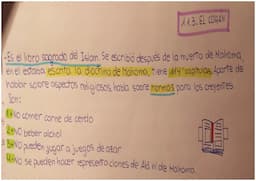 1.1.3. EL CORÁN
-Es el libro sagrado del Islam. Se escribió después de la muerte de Mahoma,
en él estaba escrita la doctrina de Mahoma, tiene 114 capítulos. Aparte de
hablar sobre aspectos religiosos, habla sobre normas para los creyentes.
Son:
1. No comer carne de cerdo
2. No beber alcohol
3. No pueden jugar a juegos de azar
4. No se pueden hacer representaciones de Alá ni de Mahoma.